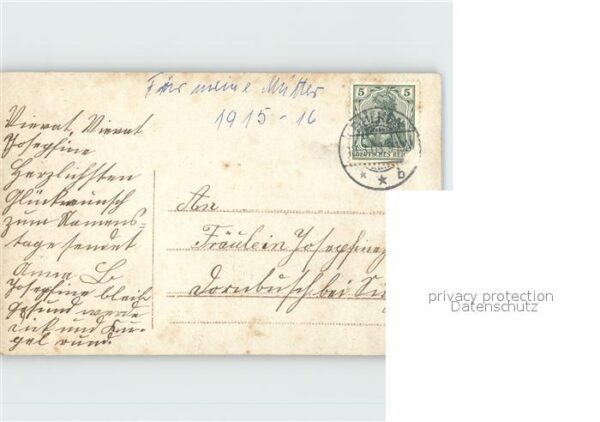 Für meine Mutter
1915-16
5 5
DEUTSCHES REICH
* * b
Vievat, Vievat
Josephine
Herzlichsten
Glückwunsch
zum Namens-
tage sendet
Anna L
Josephine bleib
gesund werde
dick und Ku-
gel rund.
An
Fräulein Josephine
Dornbusch bei
privacy protection
Datenschutz